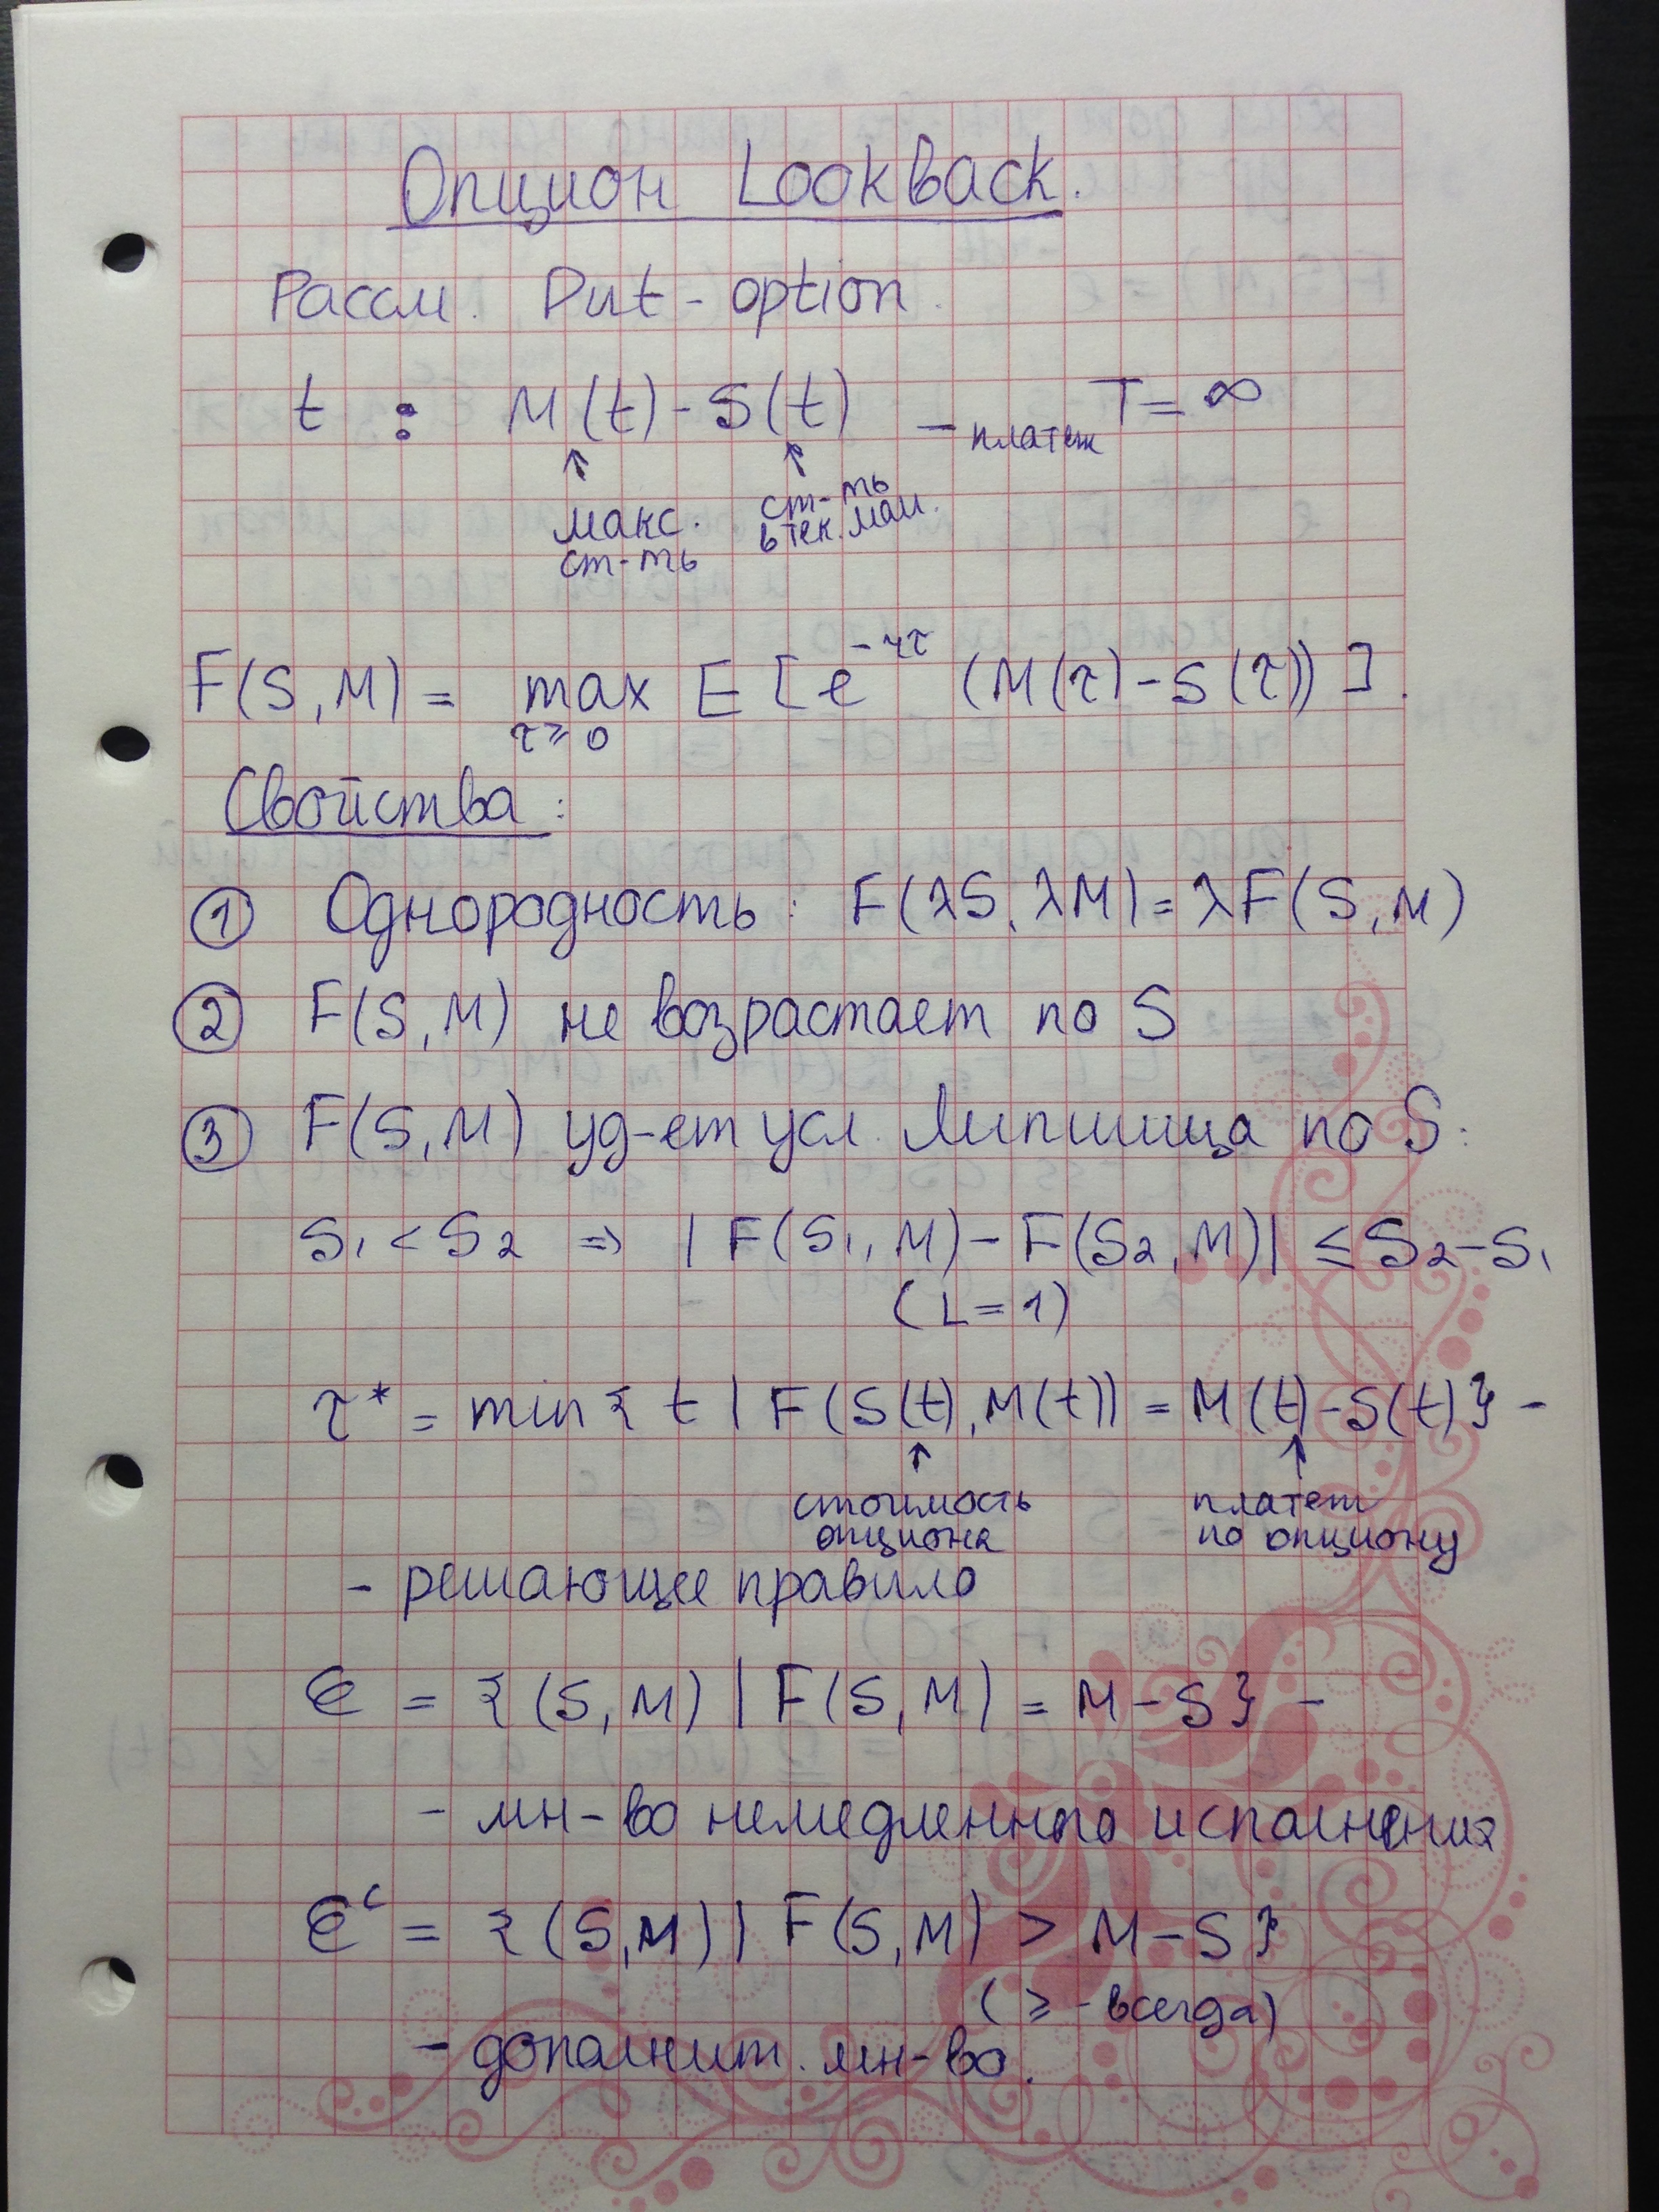 Опцион Lookback.
Рассм. Put - option.
t : M(t) - S(t) – платеж T = ∞
↑ макс. ст-ть
↑ ст-ть в тек. мом.
F(S, M) = max E [e^{-rτ} (M(τ) - S(τ))].
τ ≥ 0
Свойства:
① Однородность: F(λS, λM) = λF(S, M)
② F(S, M) не возрастает по S
③ F(S, M) уд-ет усл. Липшица по S:
S₁ < S₂ ⇒ | F(S₁, M) - F(S₂, M)| ≤ S₂ - S₁
(L = 1)
τ* = min { t | F(S(t), M(t)) = M(t) - S(t)} -
↑ стоимость опциона
↑ платеж по опциону
- решающее правило
C = {(S, M) | F(S, M) = M - S} -
- мн-во немедленного исполнения
C^c = {(S, M) | F(S, M) > M - S}
(≥ - всегда)
- дополнит. мн-во.